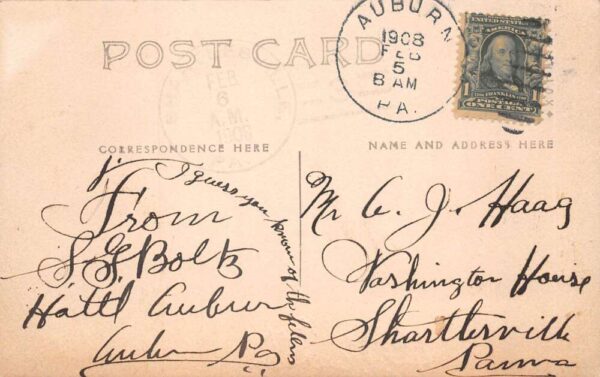 POST CARD
AUBURN
1908
FEB
5
8 AM
PA.
UNITED STATES OF
AMERICA
1
FRANKLIN
1
POSTAGE
ONE CENT
FEB
6
A.M.
1908
CORRESPONDENCE HERE
NAME AND ADDRESS HERE
I guess you know of the
From
S. G. Boltz
Hotel Auburn
Auburn Pa
Mr A. J. Haag
Washington House
Shartlersville
Penna